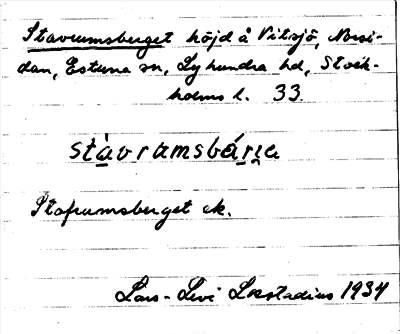 Stavrumsberget höjd å Vitsjö, Norsi-
dan, Estuna sn, Lyhundra hd, Stock-
holms l. 33.
stàvramsbárje
Stafrumsberget ek.
Lars-Levi Læstadius 1934